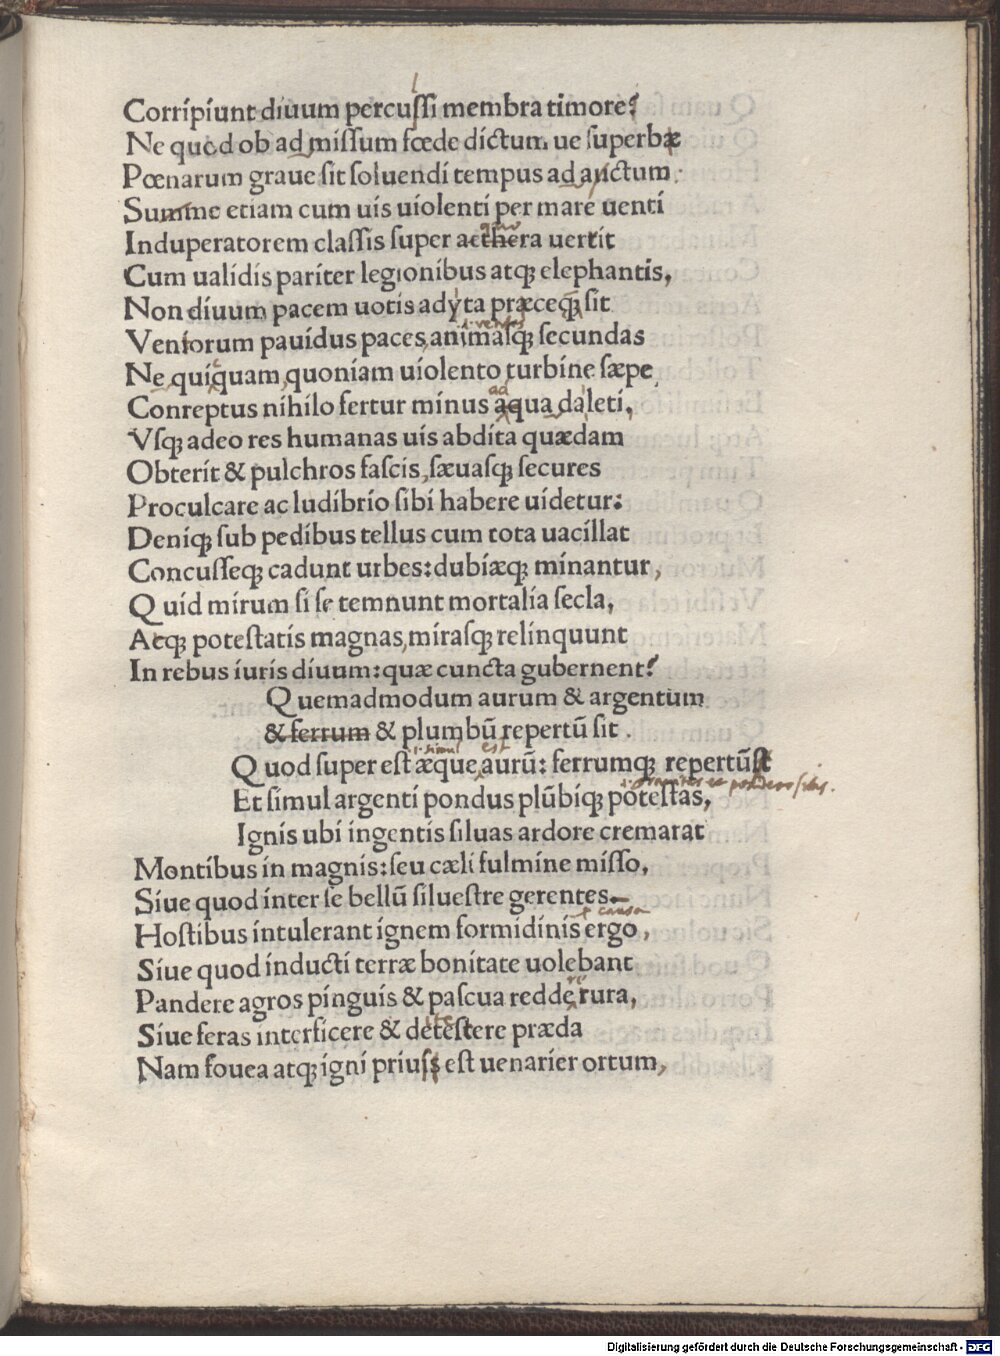 Corripiunt diuum percuſſi membra timore?
Ne quod ob ad miſſum fœde dictum ue ſuperbæ
Pœnarum graue ſit ſoluendi tempus ad auctum.
Summe etiam cum uis uiolenti per mare uenti
Induperatorem claſſis ſuper aethera uertit
Cum ualidis pariter legionibus atqꝫ elephantis,
Non diuum pacem uotis adyta præceqꝫ ſit
i. ventos
Ventorum pauidus paces, animaſqꝫ ſecundas
Ne quiquam, quoniam uiolento turbine ſæpe,
ad
Conreptus nihilo fertur minus aqua daleti,
Vſqꝫ adeo res humanas uis abdita quædam
Obterit & pulchros faſcis, ſæuaſqꝫ ſecures
Proculcare ac ludibrio ſibi habere uidetur:
Deniqꝫ ſub pedibus tellus cum tota uacillat
Concuſſeqꝫ cadunt urbes: dubiæqꝫ minantur,
Quid mirum ſi ſe temnunt mortalia ſecla,
Atqꝫ poteſtatis magnas, miraſqꝫ relinquunt
In rebus iuris diuum: quæ cuncta gubernent?
Quemadmodum aurum & argentum
& ferrum & plumbū repertū ſit.
i. simul est
Quod ſuper eſt æque aurū: ferrumqꝫ repertūſt
Et ſimul argenti pondus plūbiqꝫ poteſtas,
Ignis ubi ingentis ſiluas ardore cremarat
Montibus in magnis: ſeu cæli fulmine miſſo,
Siue quod inter ſe bellū ſilueſtre gerentes
causa
Hoſtibus intulerant ignem formidinis ergo,
Siue quod inducti terræ bonitate uolebant
re
Pandere agros pinguis & paſcua redde rura,
Siue feras interficere & deteſtere præda
Nam fouea atqꝫ igni priuſs eſt uenarier ortum,
Digitalisierung gefördert durch die Deutsche Forschungsgemeinschaft - DFG